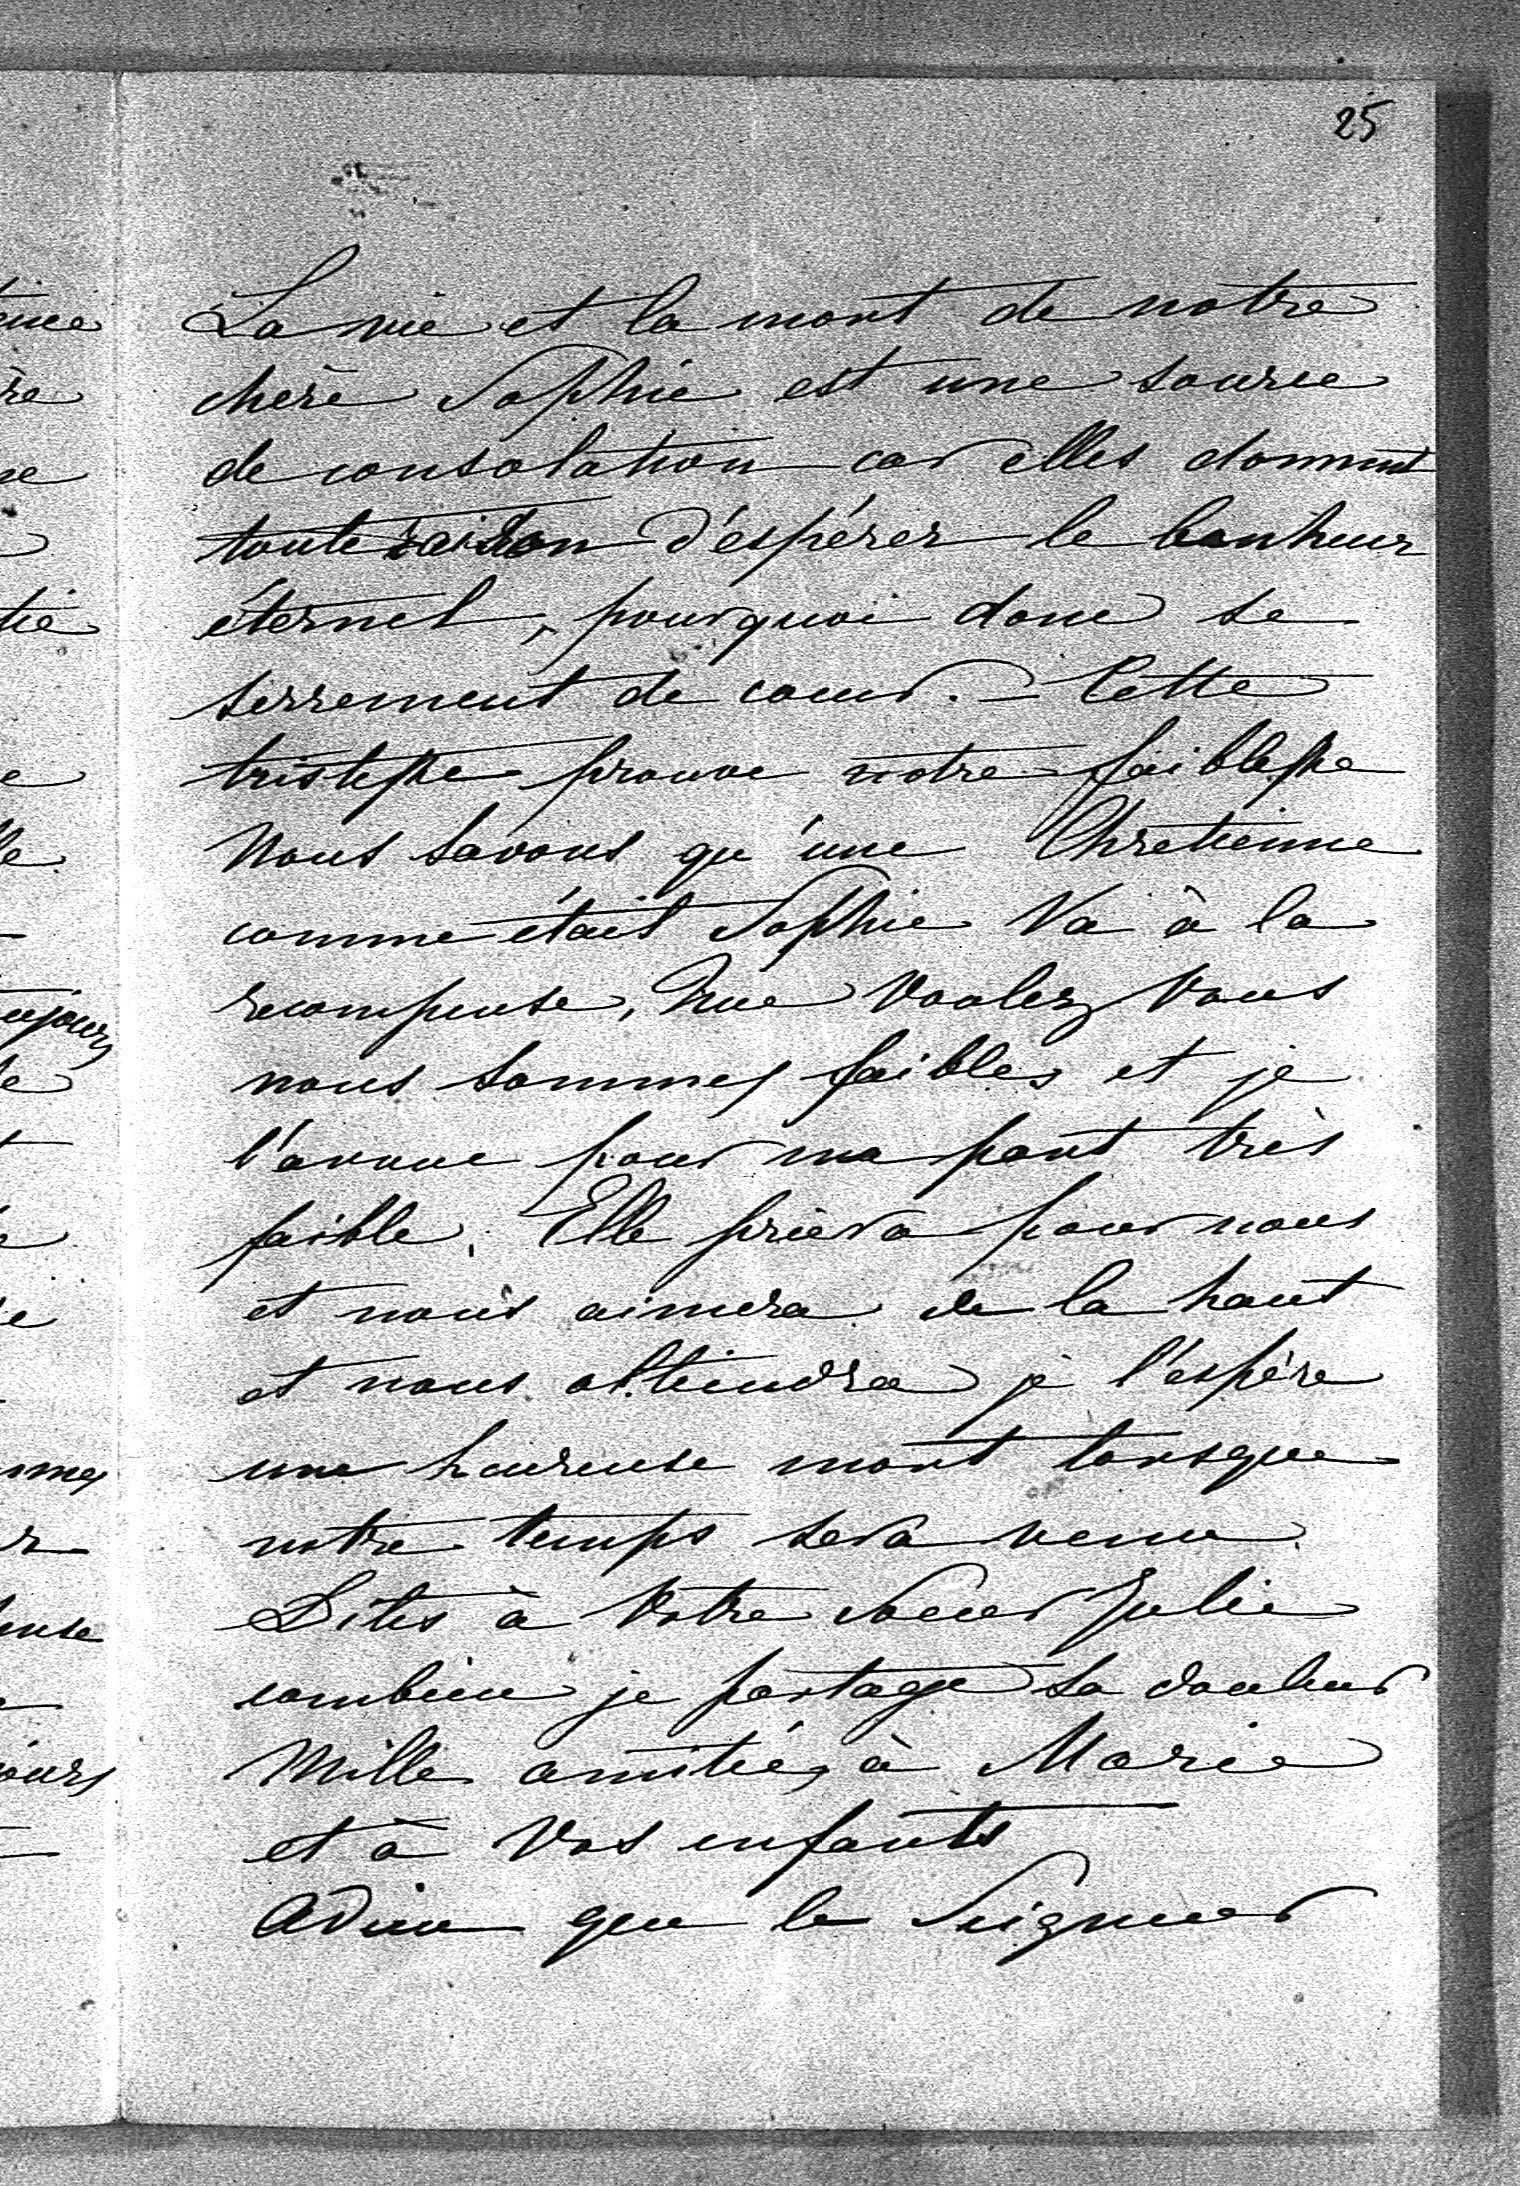 25
La vie et la mort de notre
chère Sophie est une source
de consolation car elles donnent
toute raison d'éspérer le bonheur
éternel, pourquoi donc se
serrement de cœur. – Cette
tristesse prouve notre faiblesse
Nous savons qu'une Chretienne
comme était Sophie Va à la
recompense, Que Voulez Vous
nous sommes faibles et je
l'avoue pour ma part très
faible. Elle priera pour nous
et nous aimera de la haut
et nous obtiendra je l'éspére
une heureuse mort lorsque
notre temps sera venu.
Dites à Votre Soeur Julie
combien je partage sa douleur
Mille amitiés à Marie
et à Vos enfants
Adieu que le Seigneur